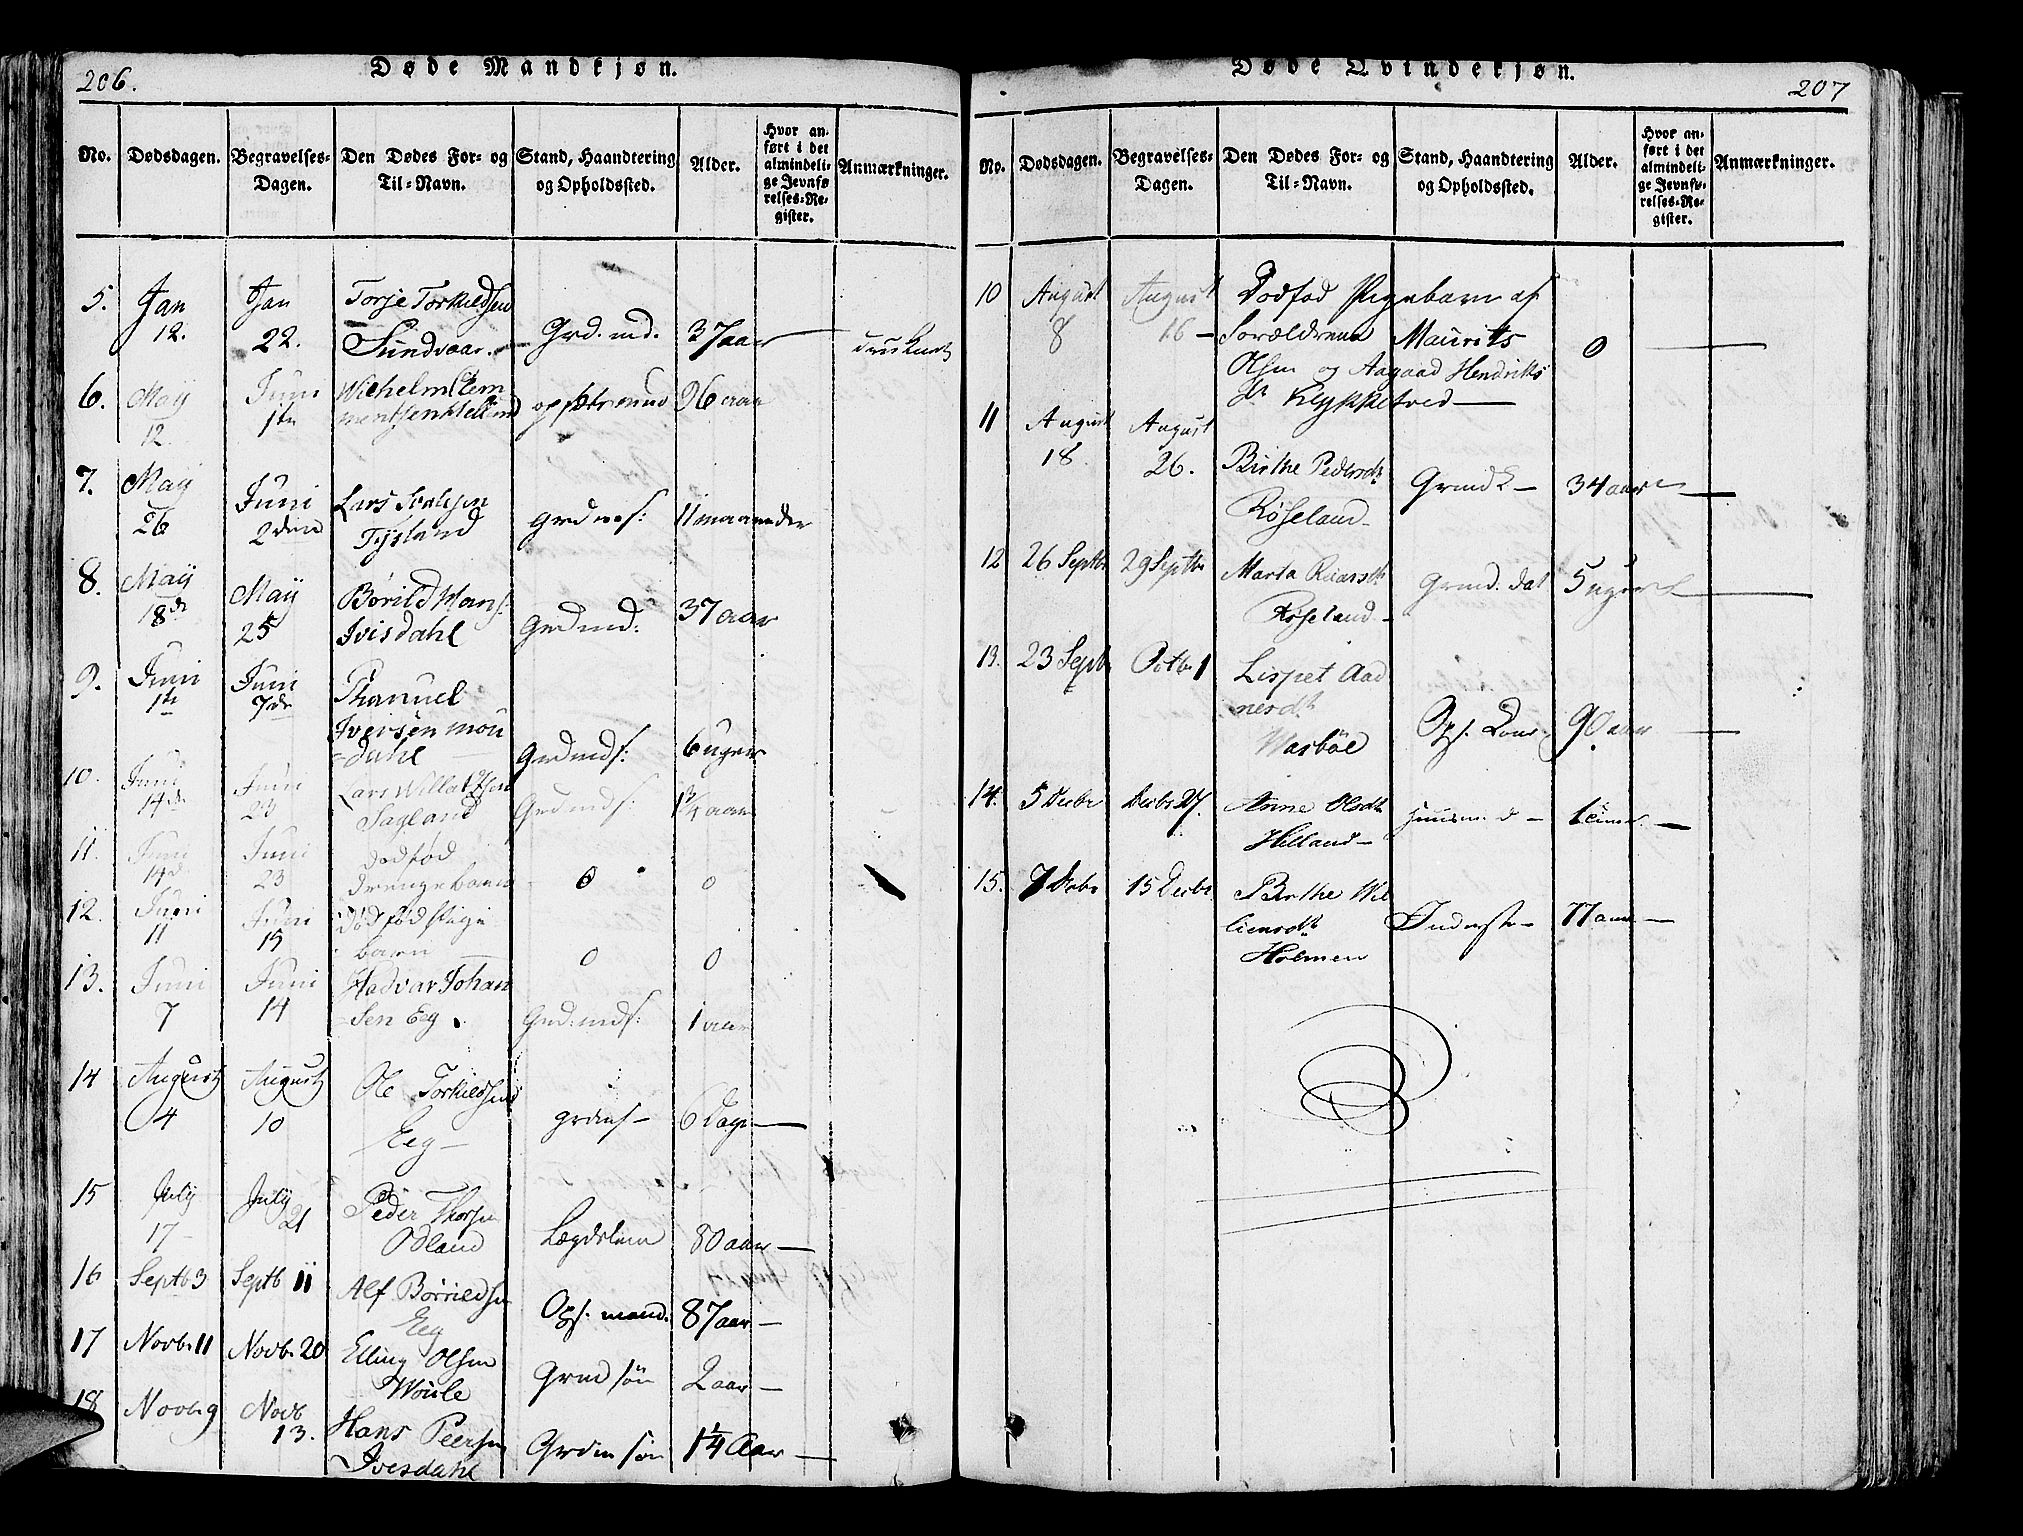 206.
Døde Mandkjøn.
No. Dødsdagen. Begravelses-Dagen. Den Dødes For- og Til-Navn. Stand, Haandtering og Opholdssted. Alder. Hvor anført i det almindelige Jevnførelses-Register. Anmærkninger.
5. Jan Jan Torje Torkildsen
12. 22. Sundvaar. Grd. md. 37 aar druknet
6. May Juni Wilhelm Clem
12 1te mentsen Helland 96 aar
7. May Juni Lars
26 2den Tysland Grdms: 11 maaneder
8. May May Børild Mons:
18de 25 Ivisdahl Grdmd: 37 aar
9. Juni Juni Thanuel
1te 7de Iversen Mou
dahl Grdmds: 6 uger
10. Juni Juni Lars Willatsen
14de 23 Sagland Grdmds: 1 3/4 aar
11. Juni Juni dødfød
14d. 23 drengebarn 0 0
12. Juni Juni dødfød Pige
11 15 barn 0 0
13. Juni Juni Hadvar Johan
7 14 sen Eg. Grd:mds: 1 aar
14 August August Ole Torkildsen
4 10 Eeg 6 Dage
15 July July Peder Thorsen
17 21 Ødland Lægdslem 80 aar
16 Septb 3 Septb 11 Alf Børrildsen
Eeg Ops. mand. 87 aar
17 Novbr 11 Novbr 20 Elling Olsen
Woule Grmd søn 2 aar
18 Novbr 9 Novb Hans Peersen
13. Ivesdahl Grdm søn 1 1/4 Aar
207
Døde Qvindekjøn.
No. Dødsdagen. Begravelses-Dagen. Den Dødes For- og Til-Navn. Stand, Haandtering og Opholdssted. Alder. Hvor anført i det almindelige Jevnførelses-Register. Anmærkninger.
10 August August Dødfød Pigebarn af
8 16 Forældrene Maurits 0
Olsen og Aagaad Hendriks
dtr Klykketved
11 August August
18. 26. Birthe Pedersdtr
Røseland Grmd k 34 aar
12 26 Septbr 29 Septbr Marta
Røseland Grmd. dat 5 uger
13. 23 Septb Octbr 1 Lispet Aad
nersdtr
Wasbøe Ops. Kone 90 aar
14. 5 Decbr Decbr 27. Anne Olsdtr
Helland Huusm. d 1 time
15. 7 Decbr 15 Decbr Birthe Wil
liemsdtr
Holmen Inderste 77 aar